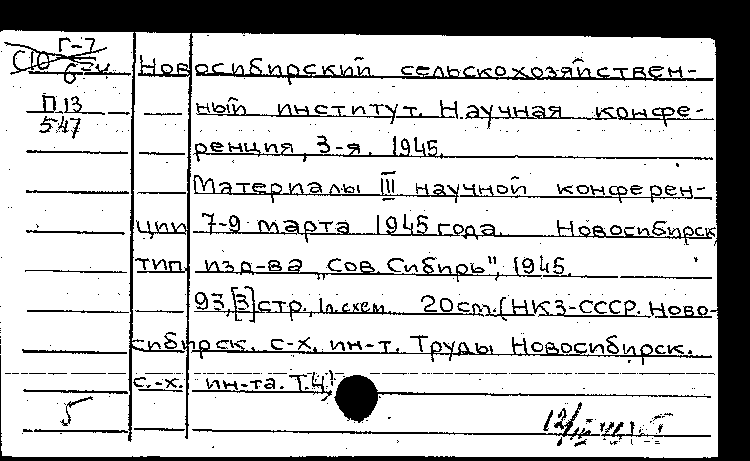 Г-7
С10
6-24
Новосибирский сельскохозяйствен-
П.13
547
ный институт. Научная конфе-
ренция, 3-я. 1945.
Материалы III научной конферен-
ции 7-9 марта 1945 года. Новосибирск,
тип. изд-ва „Сов. Сибирь", 1945.
93,[3]стр., 1л.схем. 20см.(НКЗ-СССР. Ново-
сибирск. с-х. ин-т. Труды Новосибирск.
с.-х. ин-та. Т.4)
5